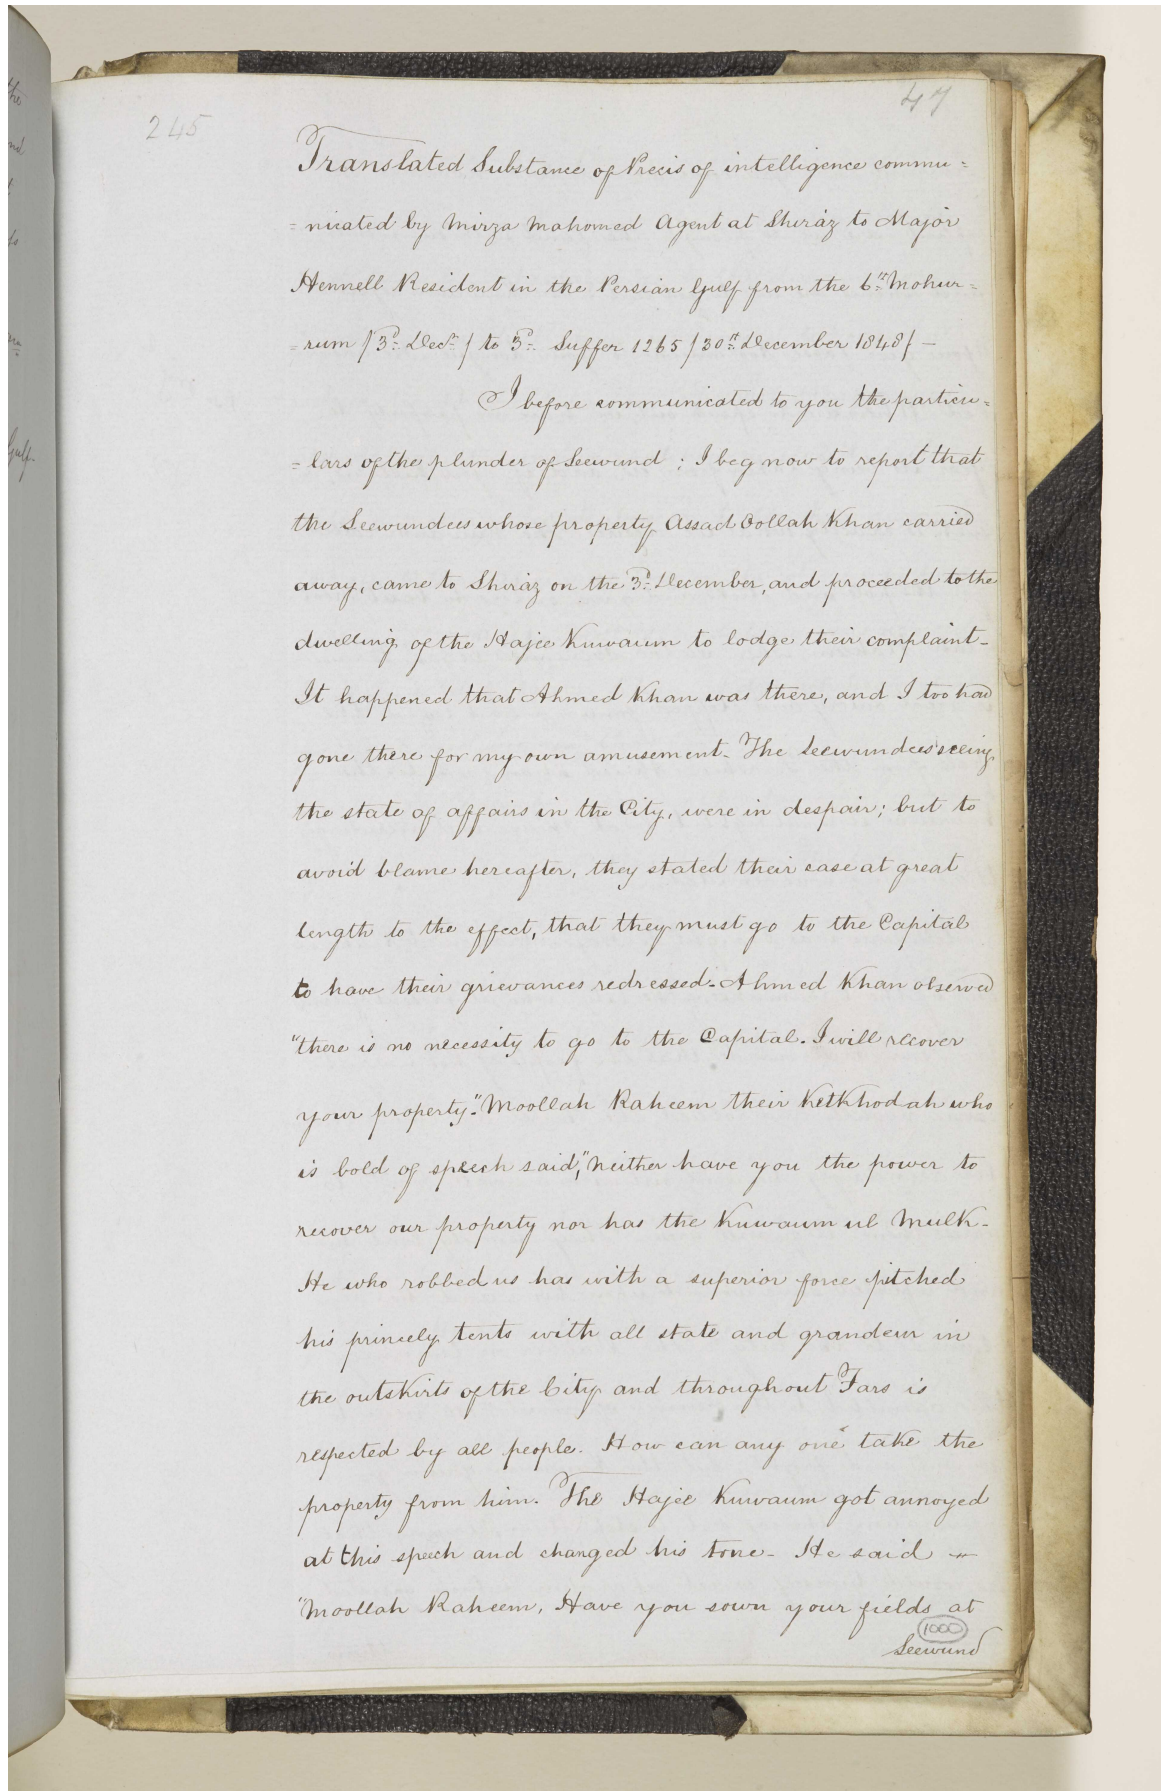 47
245
Translated Substance of Precis of intelligence commu=
=nicated by Mirza Mahomed Agent at Shiráz to Major
Hennell Resident in the Persian Gulf from the 6th Mohur=
=rum /3d Decr/ to 3d Suffer 1265 /30th December 1848/ —
I before communicated to you the particu=
=lars of the plunder of Seewund; I beg now to report that
the Seewundees whose property Assad Oollah Khan carried
away, came to Shiráz on the 3d December, and proceeded to the
dwelling of the Hajee Kuwaum to lodge their complaint-
It happened that Ahmed Khan was there, and I too had
gone there for my own amusement- The Seewundees seeing
the state of affairs in the City, were in despair; but to
avoid blame hereafter, they stated their case at great
length to the effect, that they must go to the Capital
to have their grievances redressed- Ahmed Khan observed
"there is no necessity to go to the Capital. I will recover
your property." Moollah Raheem their Ketkhodah who
is bold of speech said, "neither have you the power to
recover our property nor has the Kuwaum ul Mulk-
He who robbed us has with a superior force pitched
his princely tents with all state and grandeur in
the outskirts of the City and throughout Fars is
respected by all people. How can any one take the
property from him. The Hajee Kuwaum got annoyed
at this speech and changed his tone- He said —
"Moollah Raheem, Have you sown your fields at
1000
Seewund